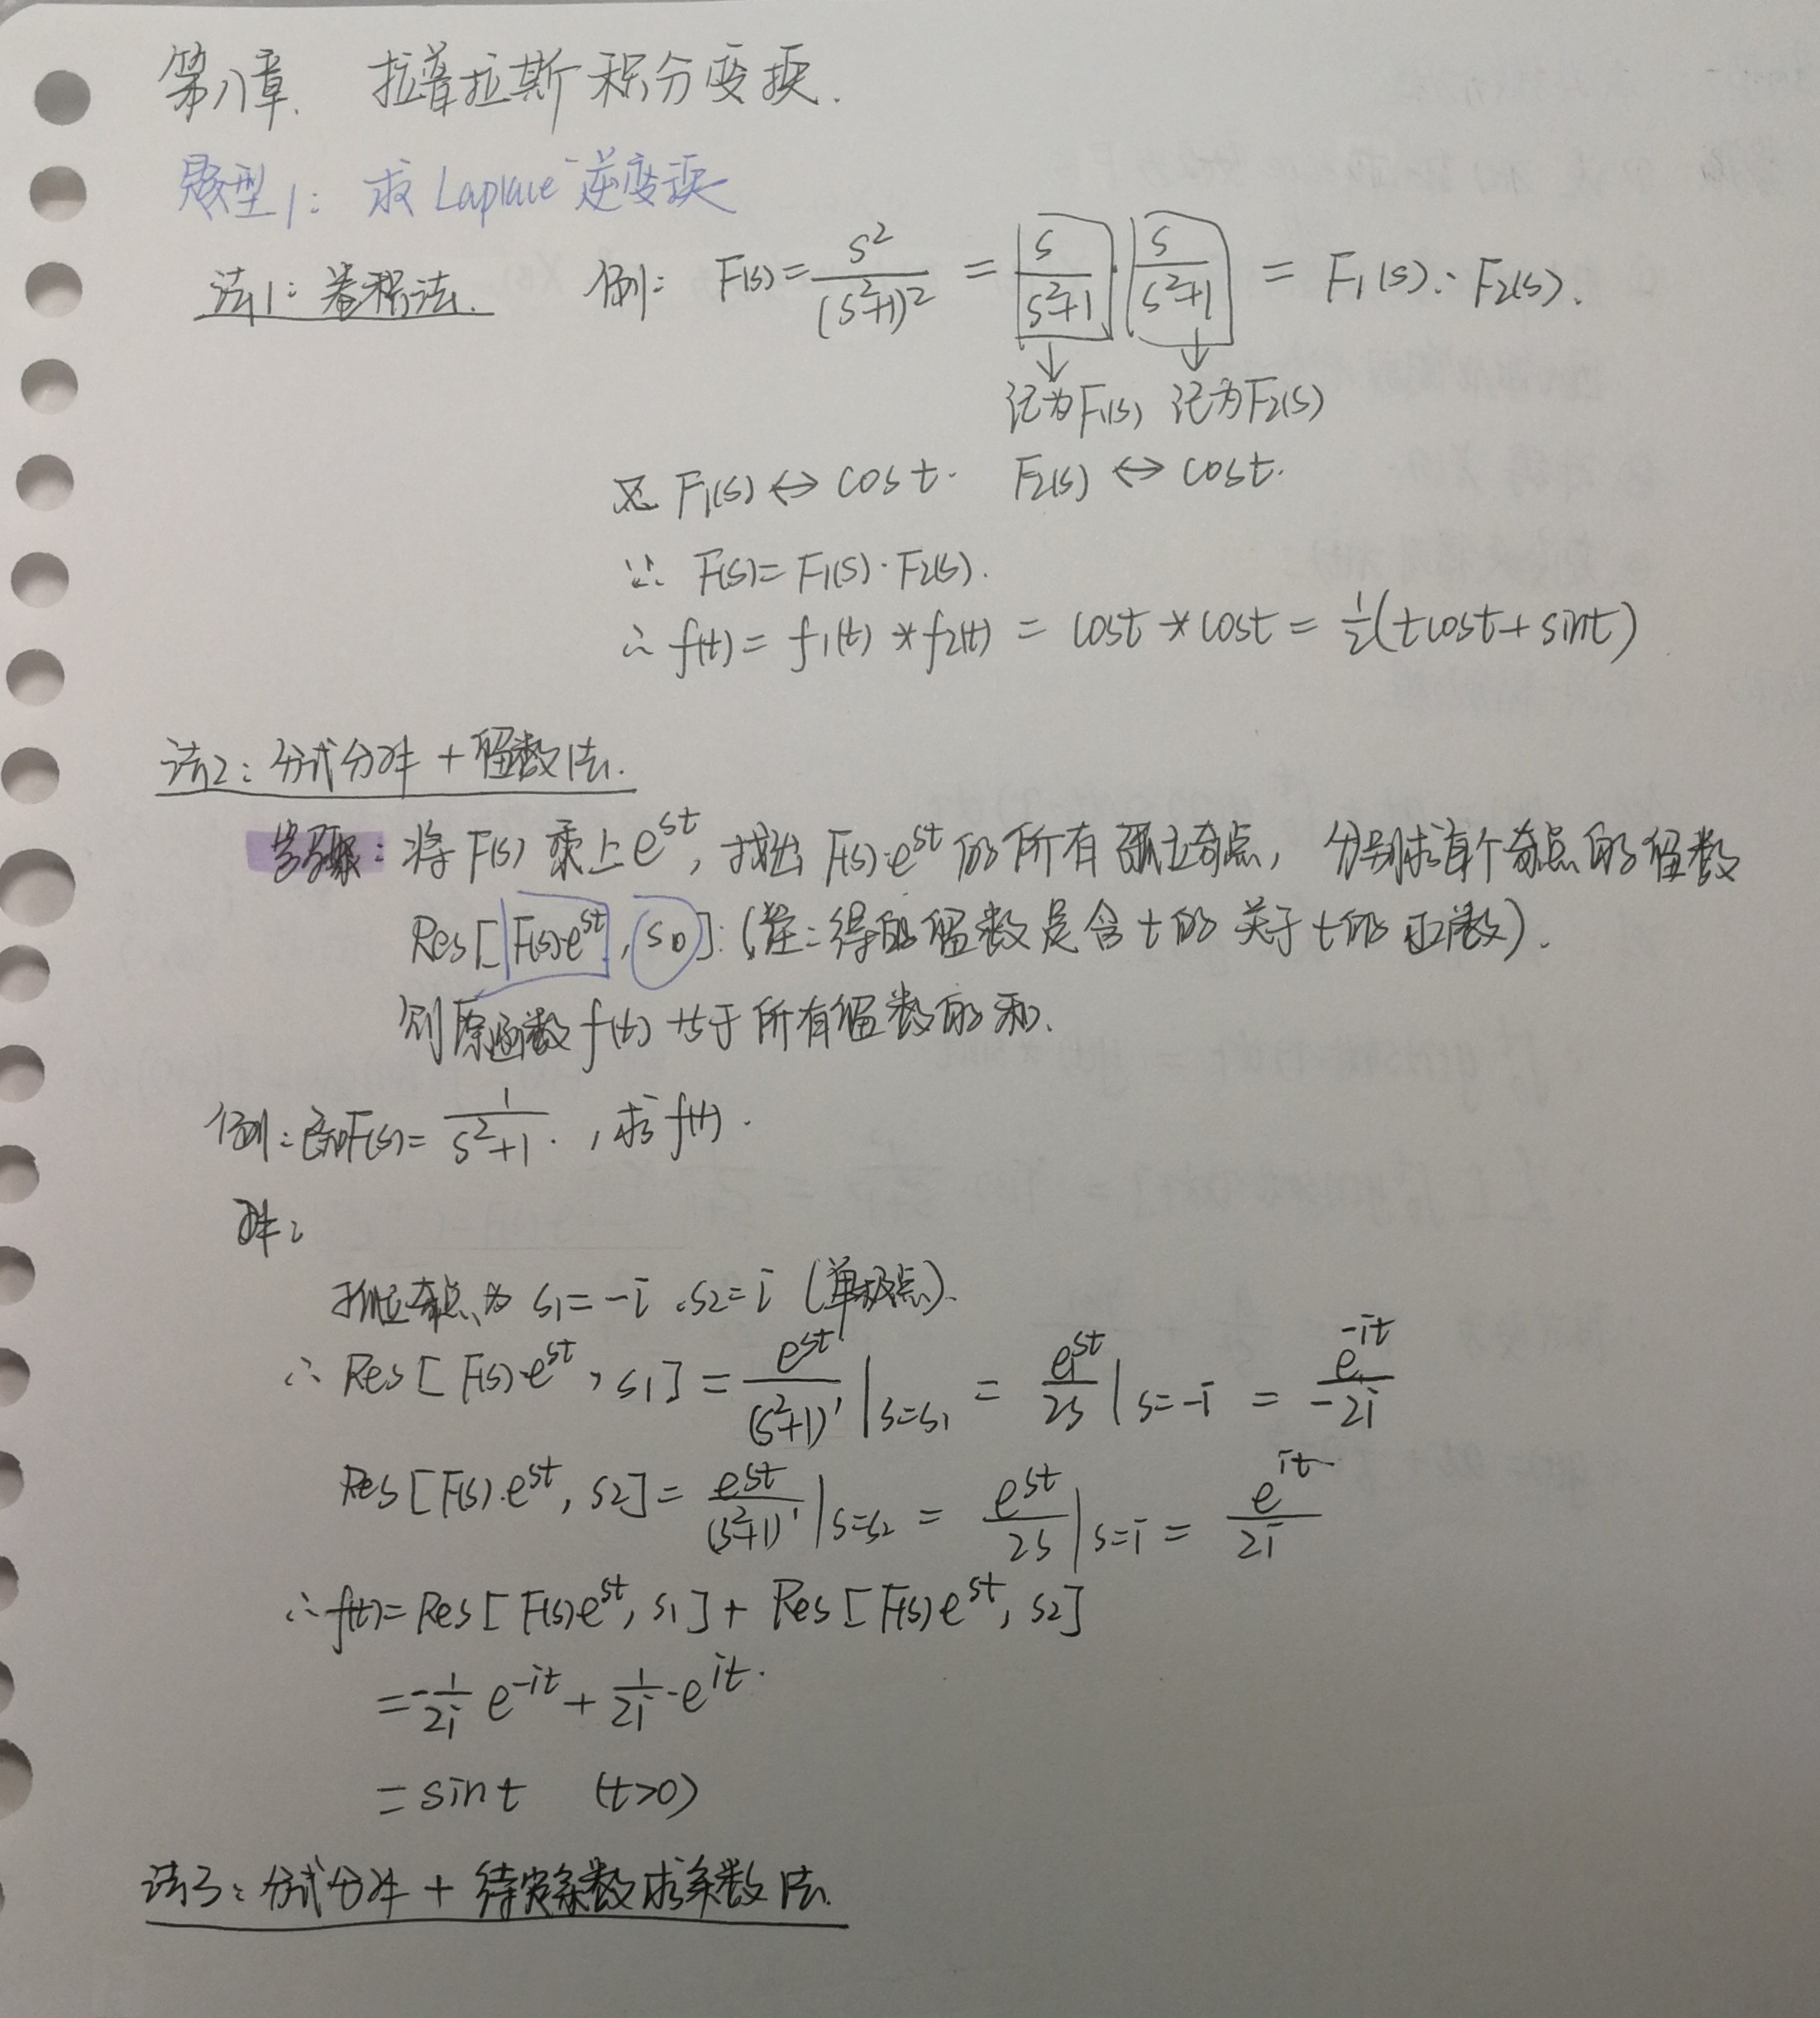 第八章. 拉普拉斯积分变换.
题型1: 求Laplace逆变换
法1: 卷积法. 例: F(s)=s²/(s²+1)² = s/(s²+1) · s/(s²+1) = F₁(s)·F₂(s).
记为F₁(s) 记为F₂(s)
又 F₁(s)↔cost. F₂(s)↔cost.
∵ F(s)=F₁(s)·F₂(s).
∴ f(t)=f₁(t)*f₂(t)=cost*cost=½(tcost+sint)
法2: 分式分解+留数法.
步骤: 将F(s)乘上e^{st}, 找出F(s)·e^{st}的所有孤立奇点, 分别求每个奇点的留数
Res[F(s)e^{st}, s₀]: (注: 得的留数是含t的关于t的函数).
则原函数f(t)等于所有留数的和.
例: 已知F(s)=1/(s²+1), 求f(t).
解:
孤立奇点为 s₁=-i, s₂=i (单极点).
∴ Res[F(s)·e^{st}, s₁]=e^{st}/(s²+1)'|_{s=s₁}=e^{st}/2s|_{s=-i}=e^{-it}/-2i
Res[F(s)·e^{st}, s₂]=e^{st}/(s²+1)'|_{s=s₂}=e^{st}/2s|_{s=i}=e^{it}/2i
∴ f(t)=Res[F(s)e^{st}, s₁]+Res[F(s)e^{st}, s₂]
=-1/2i e^{-it}+1/2i·e^{it}.
=sint (t>0)
法3: 分式分解+待定系数求系数法.